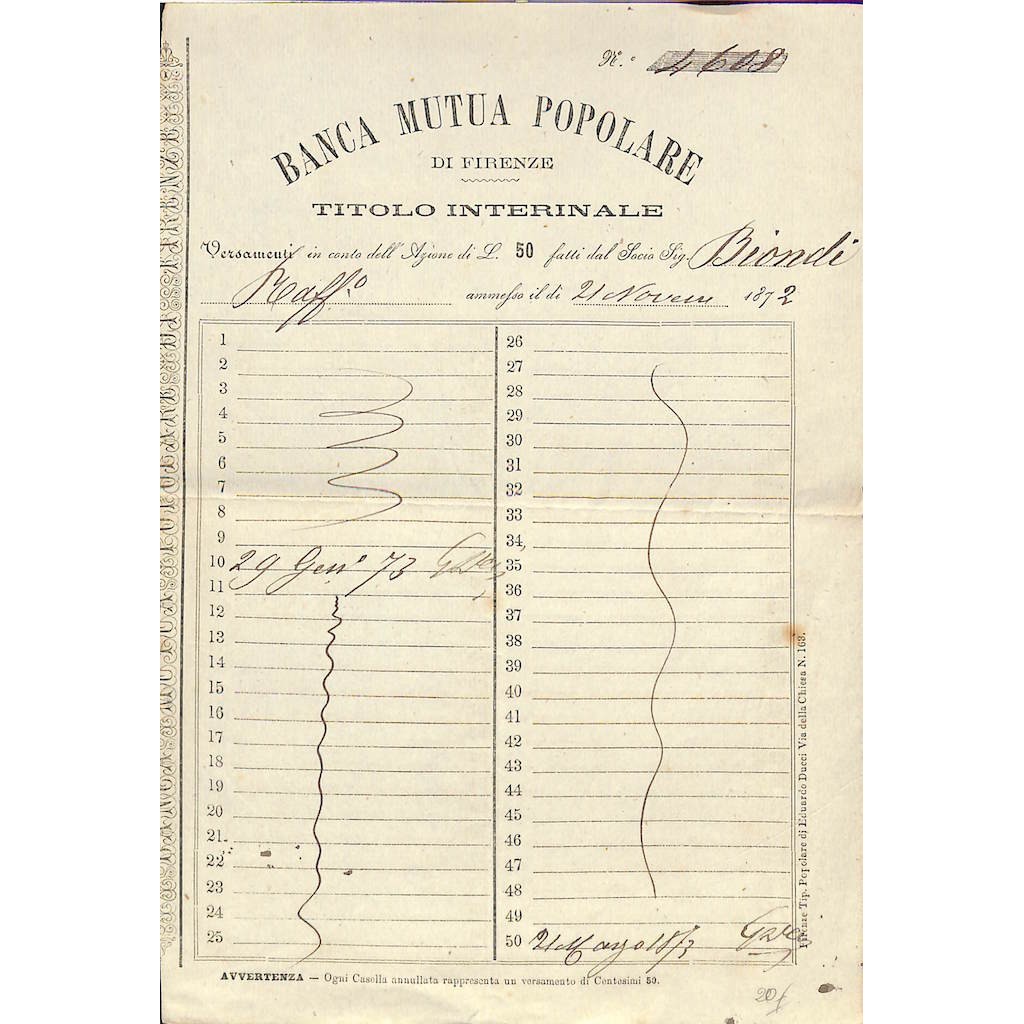 N.° 4608
BANCA MUTUA POPOLARE
DI FIRENZE
TITOLO INTERINALE
Versamenti in conto dell'Azione di L. 50 fatti dal Socio Sig. Biondi
Raff.o ammesso il dì 21 Novem 1872
1
2
3
4
5
6
7
8
9
10 29 Genn° 73
11
12
13
14
15
16
17
18
19
20
21
22
23
24
25
26
27
28
29
30
31
32
33
34
35
36
37
38
39
40
41
42
43
44
45
46
47
48
49
50 21 Marzo 1873
AVVERTENZA — Ogni Casella annullata rappresenta un versamento di Centesimi 50.
Firenze Tip. Popolare di Eduardo Ducci Via della Chiesa N. 163.